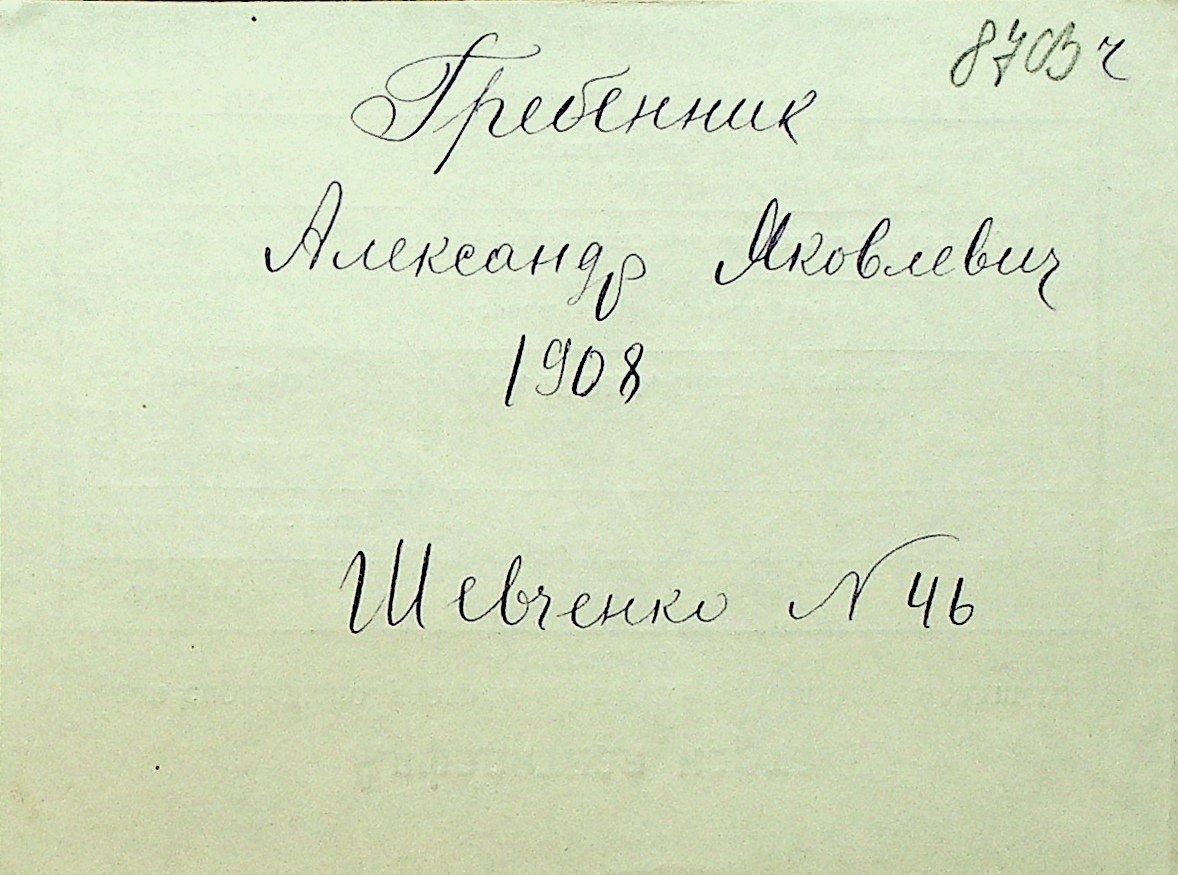 Гребенник
Александр Яковлевич
1908
Шевченко N 46